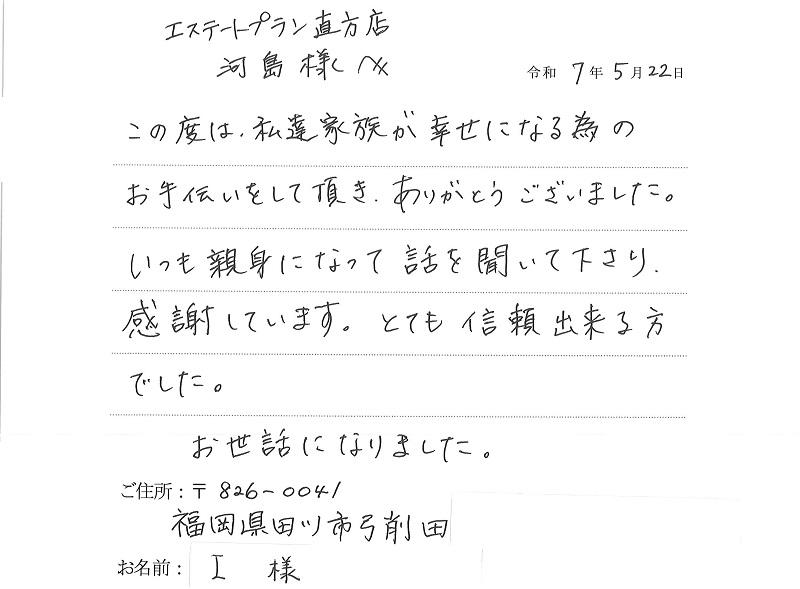 エステートプラン直方店
河島様へ
令和 7年 5月22日
この度は、私達家族が幸せになる為の
お手伝いをして頂き、ありがとうございました。
いつも親身になって話を聞いて下さり、
感謝しています。とても信頼出来る方
でした。
お世話になりました。
ご住所:〒826-0041
福岡県田川市弓削田
お名前: I 様